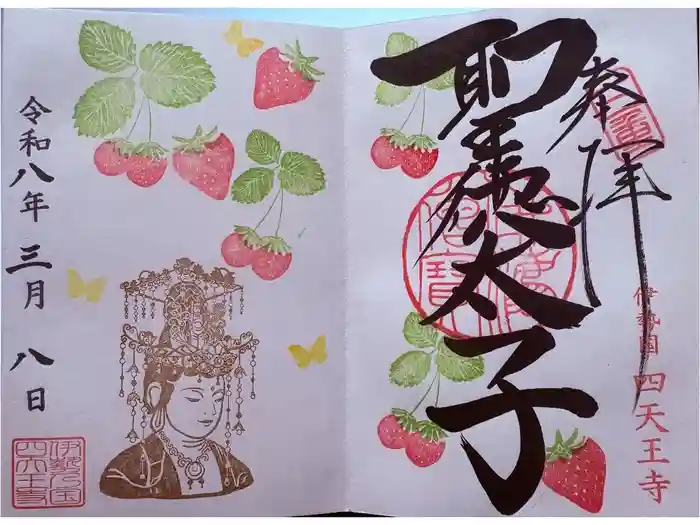 奉拝
聖徳太子
伊勢国 四天王寺
令和八年 三月 八日
伊勢乃国
四天王寺